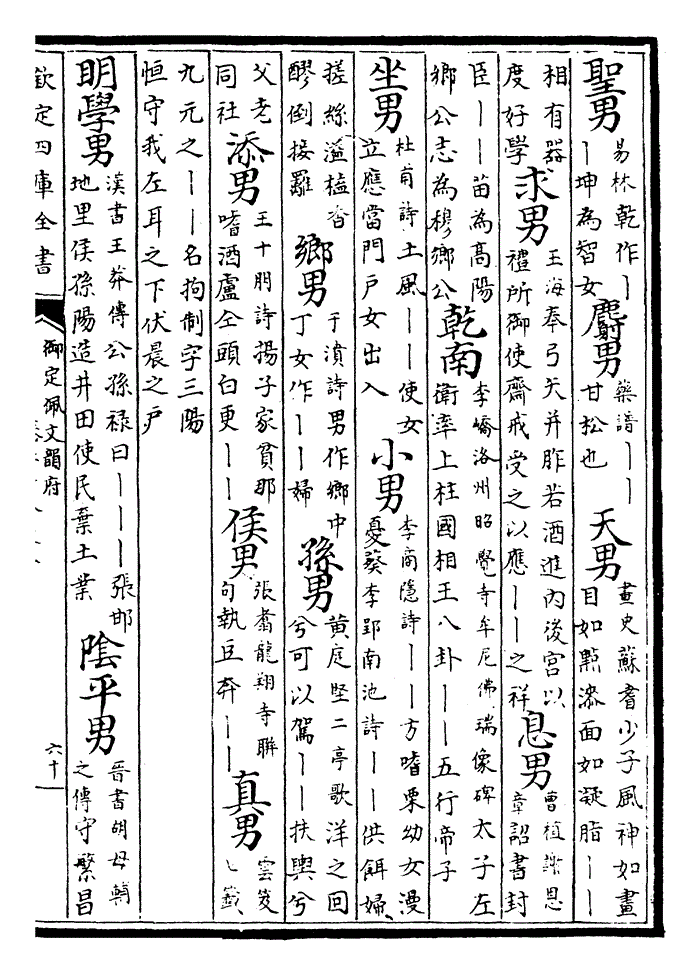 聖男 易林乾作丨丨坤為智女 麝男 藥譜丨丨甘松也 天男 畫史蘇耆少子風神如畫目如點漆面如凝脂丨丨
相有器度好學 求男 玉海奉弓矢并胙若酒進内後宫以禮所御使齋戒受之以應丨丨之祥 息男 曹植謝恩章詔書封
臣丨丨苗為高陽鄉公志為穆鄉公 乾南 李嶠洛州昭覺寺牟尼佛瑞像碑太子左衛率上柱國相王八卦丨丨五行帝子
坐男 杜甫詩土風丨丨使女立應當門戶女出入 小男 李商隱詩丨丨方嗜栗幼女漫憂葵李郢南池詩丨丨供餌婦
搓絲溢榼香醪倒接䍦 鄉男 于濆詩男作鄉中丁女作丨丨婦 孫男 黄庭堅二亭歌洋之回兮可以駕丨丨扶輿兮
父老同社 添男 王十朋詩揚子家貧那嗜酒盧仝頭白更丨丨 侯男 張翥龍翔寺聯句執豆奔丨丨 真男 雲笈七籤
九元之丨丨名拘制字三陽恒守我左耳之下伏晨之户
明學男 漢書王莽傳公孫禄曰丨丨丨張邯地里侯孫陽造井田使民棄土業 陰平男 晉書胡母輔之傳守繁昌
欽定四庫全書
御定佩文韻府
六十